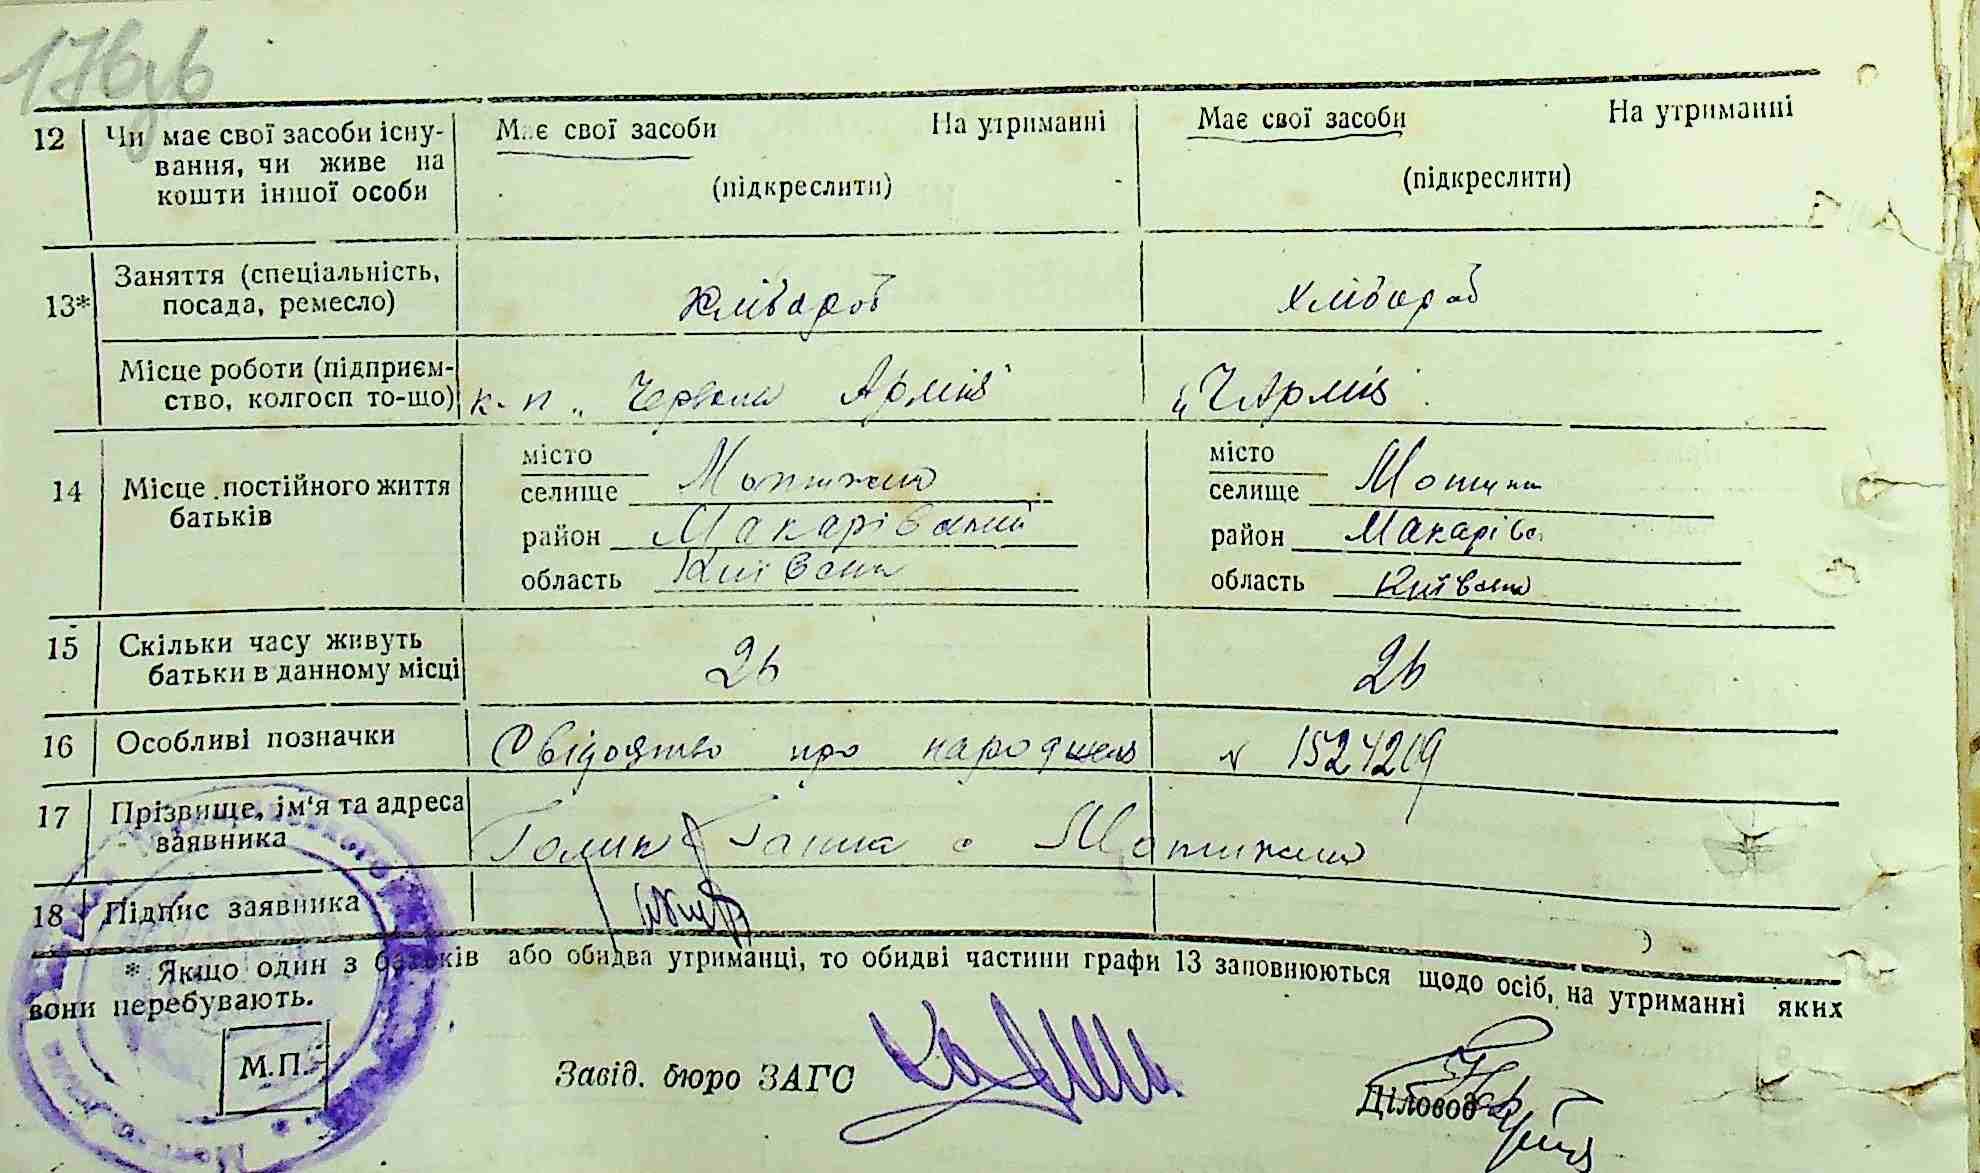 176
12 Чи має свої засоби існу-вання, чи живе на кошти іншої особи
Має свої засоби На утриманні (підкреслити)
Має свої засоби На утриманні (підкреслити)
13* Заняття (спеціальність, посада, ремесло)
хлібороб
хлібороб
Місце роботи (підприєм-ство, колгосп то-що)
к-п „Червона Армія"
„Ч Армія"
14 Місце постійного життя батьків
місто
селище Мотижин
район Макарівський
область Київська
місто
селище Мотижин
район Макарівс
область Київська
15 Скільки часу живуть батьки в данному місці
26
26
16 Особливі позначки
Свідоцтво про народження № 1524209
17 Прізвище, ім'я та адреса заявника
Голик Ганна с Мотижин
18 Підпис заявника
* Якщо один з батьків або обидва утриманці, то обидві частини графи 13 заповнюються щодо осіб, на утриманні яких
вони перебувають.
М.П.
Завід. бюро ЗАГС
Діловод